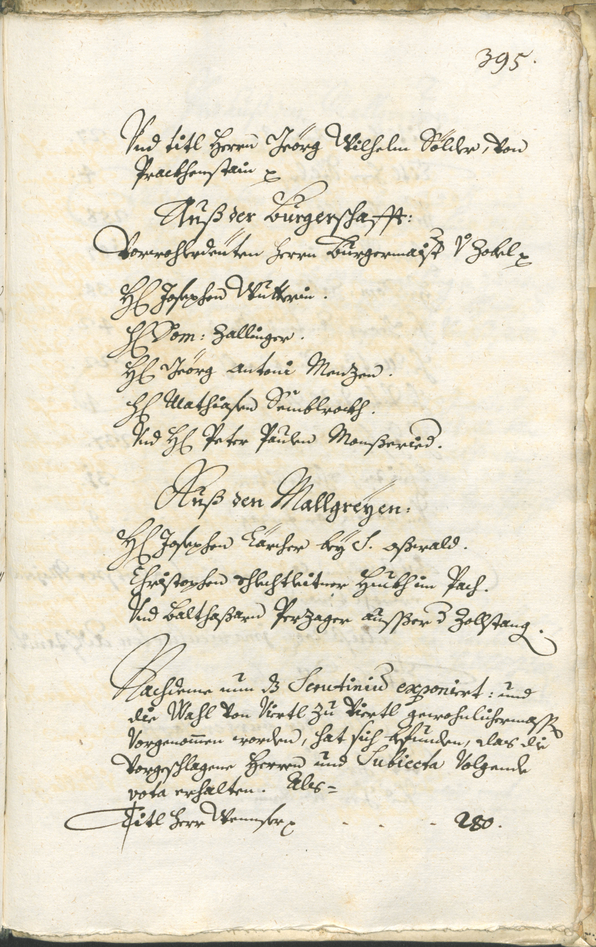 395.
Und titl Herrn Georg Wilhelm Söldr, von
Prackhenstain
Auß der Burgerschafft:
Vorwohlerdeuten Herrn Burgermaist Zobel
H Josephen Wutterin.
H Dom: Zallinger.
H Georg Antoni Menzen.
H Mathiasen Semblrockh.
Und H Peter Paulen Monßeried.
Auß den Mallgreyen:
H Josephen Kärcher bey S. Oßwald.
Christophen Schlechtleitner Hueb im Pach.
Und Balthaßarn Perzager ausser Zollstang.
Nachdeme nun dz Scrutiniu exponiert: und
die Wahl von Viertl zu Viertl gewohnlichermass
Vorgenomen worden, hat sich befunden, das die
Vorgeschlagene Herren und Subiecta Volgende
vota erhalten. Als=
Titl Herr - - - 280.